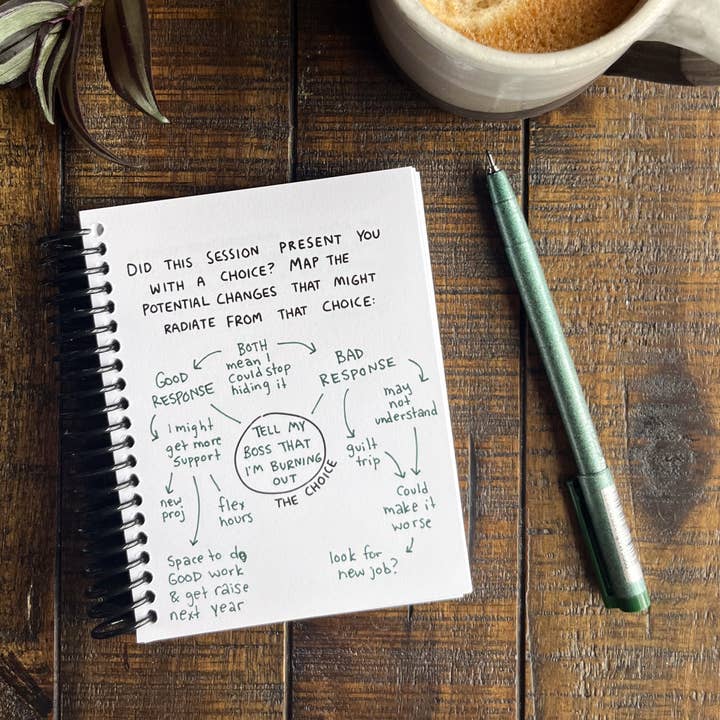 DID THIS SESSION PRESENT YOU
WITH A CHOICE? MAP THE
POTENTIAL CHANGES THAT MIGHT
RADIATE FROM THAT CHOICE:
BOTH
mean I
could stop
hiding it
GOOD
RESPONSE
BAD
RESPONSE
I might
get more
support
TELL MY
BOSS THAT
I'M BURNING
OUT
THE CHOICE
guilt
trip
may
not
understand
new
proj
flex
hours
Could
make it
worse
Space to do
GOOD work
& get raise
next year
look for
new job?